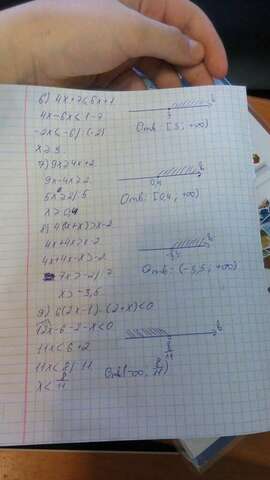 6) 4x+7≤6x+1
4x-6x≤1-7
-2x≤-6/:(-2)
x≥3
3
Отв: [3; +∞)
7) 9x≥4x+2
9x-4x≥2
5x≥2/:5
x≥0,4
0,4
Отв: [0,4; +∞)
8) 4(x+x)>x-2
4x+4x>x-2
4x+4x-x>-2
7x>-2/:7
x>-3,5
-3,5
Отв: (-3,5; +∞)
9) 6(2x-1)-(2+x)<0
12x-6-2-x<0
11x<6+2
11x<8/:11
x<8/11
8/11
Отв(-∞; 8/11)